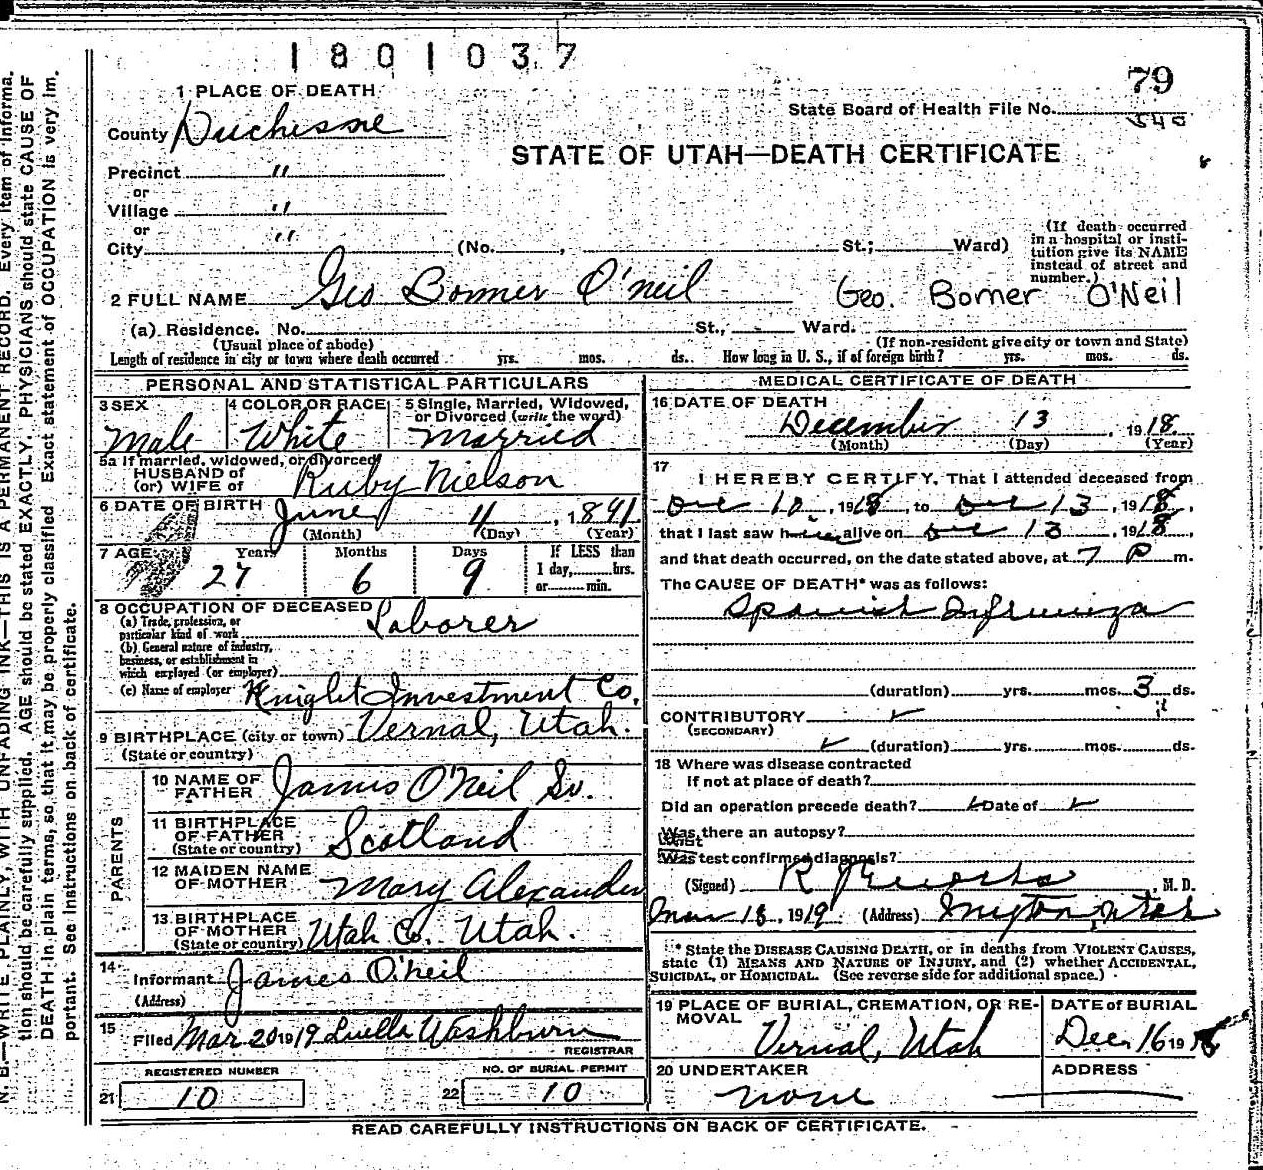 1801037
79
State Board of Health File No.
540
1 PLACE OF DEATH
County Duchesne
STATE OF UTAH—DEATH CERTIFICATE
Precinct "
or
Village "
or
City " (No. , St.; Ward)
(If death occurred in a hospital or insti-
tution give its NAME
instead of street and
number.)
2 FULL NAME Geo Bomer O'neil Geo. Bomer O'Neil
(a) Residence. No. St., Ward.
(Usual place of abode) (If non-resident give city or town and State)
Length of residence in city or town where death occurred yrs. mos. ds. How long in U. S., if of foreign birth? yrs. mos. ds.
PERSONAL AND STATISTICAL PARTICULARS
3 SEX Male
4 COLOR OR RACE White
5 Single, Married, Widowed,
or Divorced (write the word)
Married
5a If married, widowed, or divorced
HUSBAND of
(or) WIFE of Ruby Nielson
6 DATE OF BIRTH June 4, 1891
(Month) (Day) (Year)
7 AGE Years Months Days If LESS than
1 day, hrs.
or min.
27 6 9
8 OCCUPATION OF DECEASED
(a) Trade, profession, or
particular kind of work Laborer
(b) General nature of industry,
business, or establishment in
which employed (or employer)
(c) Name of employer Knight Investment Co.
9 BIRTHPLACE (city or town) Vernal, Utah.
(State or country)
PARENTS
10 NAME OF
FATHER James O'Neil Sr.
11 BIRTHPLACE
OF FATHER
(State or country) Scotland
12 MAIDEN NAME
OF MOTHER Mary Alexander
13 BIRTHPLACE
OF MOTHER
(State or country) Utah Co. Utah.
14 Informant James O'neil
(Address)
15 Filed Mar 20 1919 Luella Washburn
REGISTRAR
REGISTERED NUMBER
21 10
NO. OF BURIAL PERMIT
22 10
MEDICAL CERTIFICATE OF DEATH
16 DATE OF DEATH
December 13, 1918
(Month) (Day) (Year)
17 I HEREBY CERTIFY, That I attended deceased from
Dec 10, 1918, to Dec 13, 1918,
that I last saw him alive on Dec 13, 1918,
and that death occurred, on the date stated above, at 7 P m.
The CAUSE OF DEATH* was as follows:
Spanish Influenza
(duration) yrs. mos. 3 ds.
CONTRIBUTORY
(SECONDARY)
(duration) yrs. mos. ds.
18 Where was disease contracted
If not at place of death?
Did an operation precede death? Date of
Was there an autopsy?
What
Was test confirmed diagnosis?
(Signed) R , M. D.
Mar 18, 1919 (Address) Utah
* State the DISEASE CAUSING DEATH, or in deaths from VIOLENT CAUSES,
state (1) MEANS AND NATURE OF INJURY, and (2) whether ACCIDENTAL,
SUICIDAL, or HOMICIDAL. (See reverse side for additional space.)
19 PLACE OF BURIAL, CREMATION, OR RE-
MOVAL
Vernal, Utah
DATE of BURIAL
Dec. 16 191
20 UNDERTAKER
none
ADDRESS
READ CAREFULLY INSTRUCTIONS ON BACK OF CERTIFICATE.
N. B.—WRITE PLAINLY, WITH UNFADING INK—THIS IS A PERMANENT RECORD. Every item of informa-
tion should be carefully supplied. AGE should be stated EXACTLY. PHYSICIANS should state CAUSE OF
DEATH in plain terms, so that it may be properly classified. Exact statement of OCCUPATION is very im-
portant. See instructions on back of certificate.